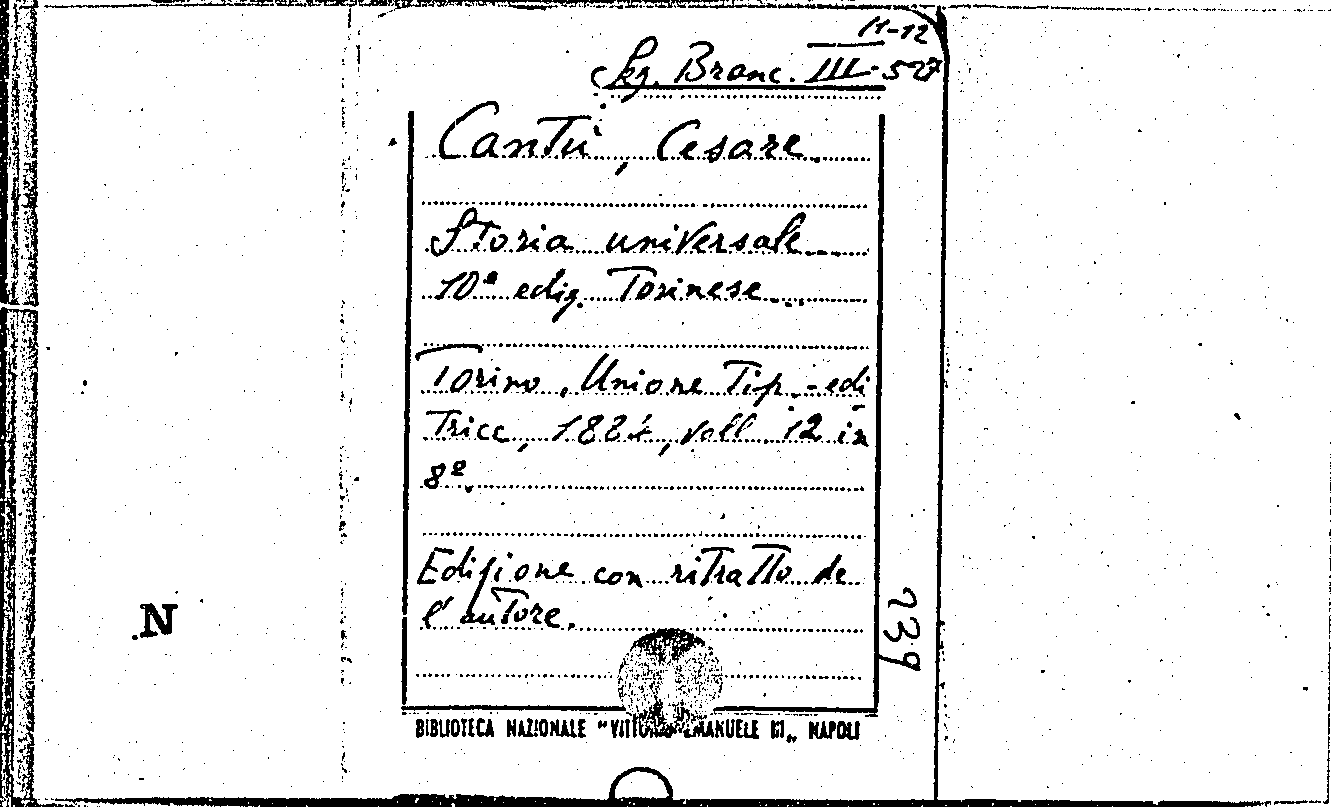 11-12
Skg. Branc. III. 527
Cantù, Cesare.
Storia universale...
10ª ediz. Torinese...
Torino, Unione Tip.-edi
Trice, 1884, voll. 12 in
8º.
Edizione con ritratto de
l'autore.
239
N
BIBLIOTECA NAZIONALE "VITTORIO EMANUELE III„ NAPOLI